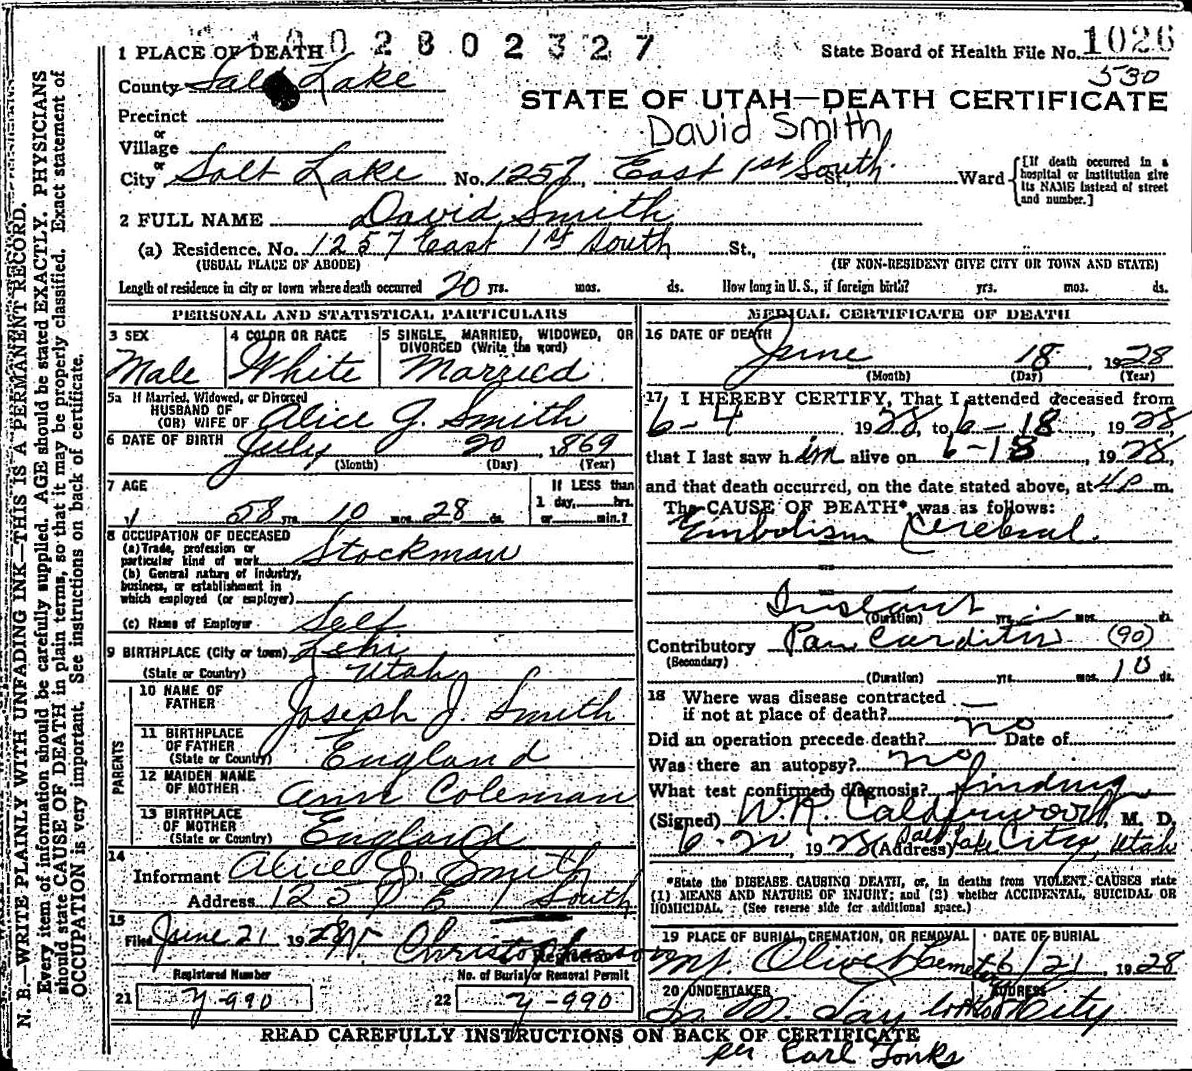 1 PLACE OF DEATH 0 0 2 8 0 2 3 2 7 State Board of Health File No. 1026
530
County Salt Lake
STATE OF UTAH—DEATH CERTIFICATE
Precinct
David Smith
or
Village
or
City Salt Lake No. 1257 East 1st South St., Ward [If death occurred in a hospital or institution give its NAME instead of street and number.]
2 FULL NAME David Smith
(a) Residence. No. 1257 East 1st South St.,
(USUAL PLACE OF ABODE) (IF NON-RESIDENT GIVE CITY OR TOWN AND STATE)
Length of residence in city or town where death occurred 20 yrs. mos. ds. How long in U. S., if foreign birth? yrs. mos. ds.
PERSONAL AND STATISTICAL PARTICULARS
3 SEX
Male
4 COLOR OR RACE
White
5 SINGLE, MARRIED, WIDOWED, OR
DIVORCED (Write the word)
Married
5a If Married, Widowed, or Divorced
HUSBAND OF
(OR) WIFE OF Alice J. Smith
6 DATE OF BIRTH July 20, 1869
(Month) (Day) (Year)
7 AGE
58 yrs. 10 mos. 28 ds.
If LESS than
1 day, hrs.
or min.?
8 OCCUPATION OF DECEASED
(a) Trade, profession or
particular kind of work Stockman
(b) General nature of industry,
business, or establishment in
which employed (or employer)
(c) Name of Employer Self
9 BIRTHPLACE (City or town) Lehi
(State or Country) Utah
PARENTS
10 NAME OF
FATHER Joseph J. Smith
11 BIRTHPLACE
OF FATHER
(State or Country) England
12 MAIDEN NAME
OF MOTHER Ann Coleman
13 BIRTHPLACE
OF MOTHER
(State or Country) England
14
Informant Alice J. Smith
Address 1257 E 1 South
15
Filed June 21 1928 W. Christopherson
Registrar
Registered Number No. of Burial or Removal Permit
21 Y-990 22 Y-990
MEDICAL CERTIFICATE OF DEATH
16 DATE OF DEATH
June 18 1928
(Month) (Day) (Year)
17 I HEREBY CERTIFY, That I attended deceased from
6-4 1928, to 6-18, 1928,
that I last saw him alive on 6-18, 1928,
and that death occurred, on the date stated above, at 4 P m.
The CAUSE OF DEATH*, was as follows:
Embolism Cerebral.
Instant
(Duration) yrs. mos. ds.
Contributory Pan Carditis (90)
(Secondary)
(Duration) yrs. mos. 10 ds.
18 Where was disease contracted
if not at place of death? —
Did an operation precede death? no Date of
Was there an autopsy? no
What test confirmed diagnosis? finding
(Signed) W.R. Calderwood, M. D.
6-20, 1928 (Address) Salt Lake City, Utah
*State the DISEASE CAUSING DEATH, or, in deaths from VIOLENT CAUSES state
(1) MEANS AND NATURE OF INJURY; and (2) whether ACCIDENTAL, SUICIDAL OR
HOMICIDAL. (See reverse side for additional space.)
19 PLACE OF BURIAL, CREMATION, OR REMOVAL DATE OF BURIAL
Mt Olivet Cemetery 6/21, 1928
20 UNDERTAKER ADDRESS
S. M. Taylor City
READ CAREFULLY INSTRUCTIONS ON BACK OF CERTIFICATE
per Earl Tonks
N. B.—WRITE PLAINLY WITH UNFADING INK—THIS IS A PERMANENT RECORD.
Every item of information should be carefully supplied. AGE should be stated EXACTLY. PHYSICIANS
should state CAUSE OF DEATH in plain terms, so that it may be properly classified. Exact statement of
OCCUPATION is very important. See instructions on back of certificate.